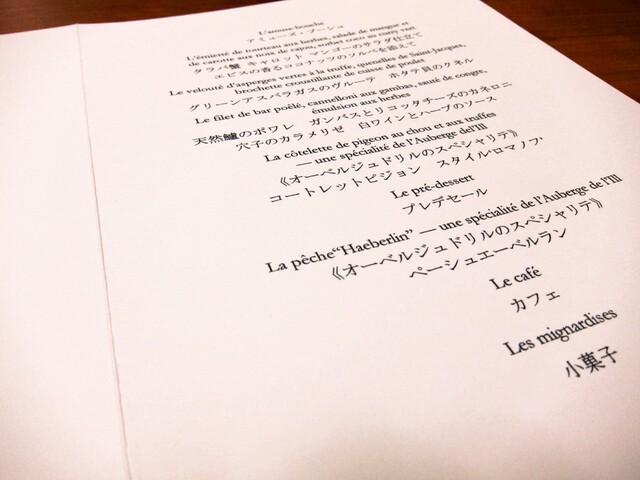 L'amuse-bouche
アミューズ・ブーシュ
L'émietté de tourteau aux herbes, salade de mangue et
de carotte aux noix de cajou, sorbet coco au curry vert
タラバ蟹 キャロット マンゴーのサラダ仕立て
エピスの香るココナッツのソルベを添えて
Le velouté d'asperges vertes à la truffe, quenelles de Saint-Jacques,
brochette croustillante de cuisse de poulet
グリーンアスパラガスのヴルーテ ホタテ貝のクネル
Le filet de bar poêlé, cannelloni aux gambas, sauté de congre,
émulsion aux herbes
天然鱸のポワレ ガンバスとリコッタチーズのカネロニ
穴子のカラメリゼ 白ワインとハーブのソース
La côtelette de pigeon au chou et aux truffes
— une spécialité de l'Auberge del'Ill
《オーベルジュドリルのスペシャリテ》
コートレットピジョン スタイル・ロマノフ
Le pré-dessert
プレデセール
La pêche“Haeberlin” — une spécialité de l'Auberge de l'Ill
《オーベルジュドリルのスペシャリテ》
ペーシュエーベルラン
Le café
カフェ
Les mignardises
小菓子